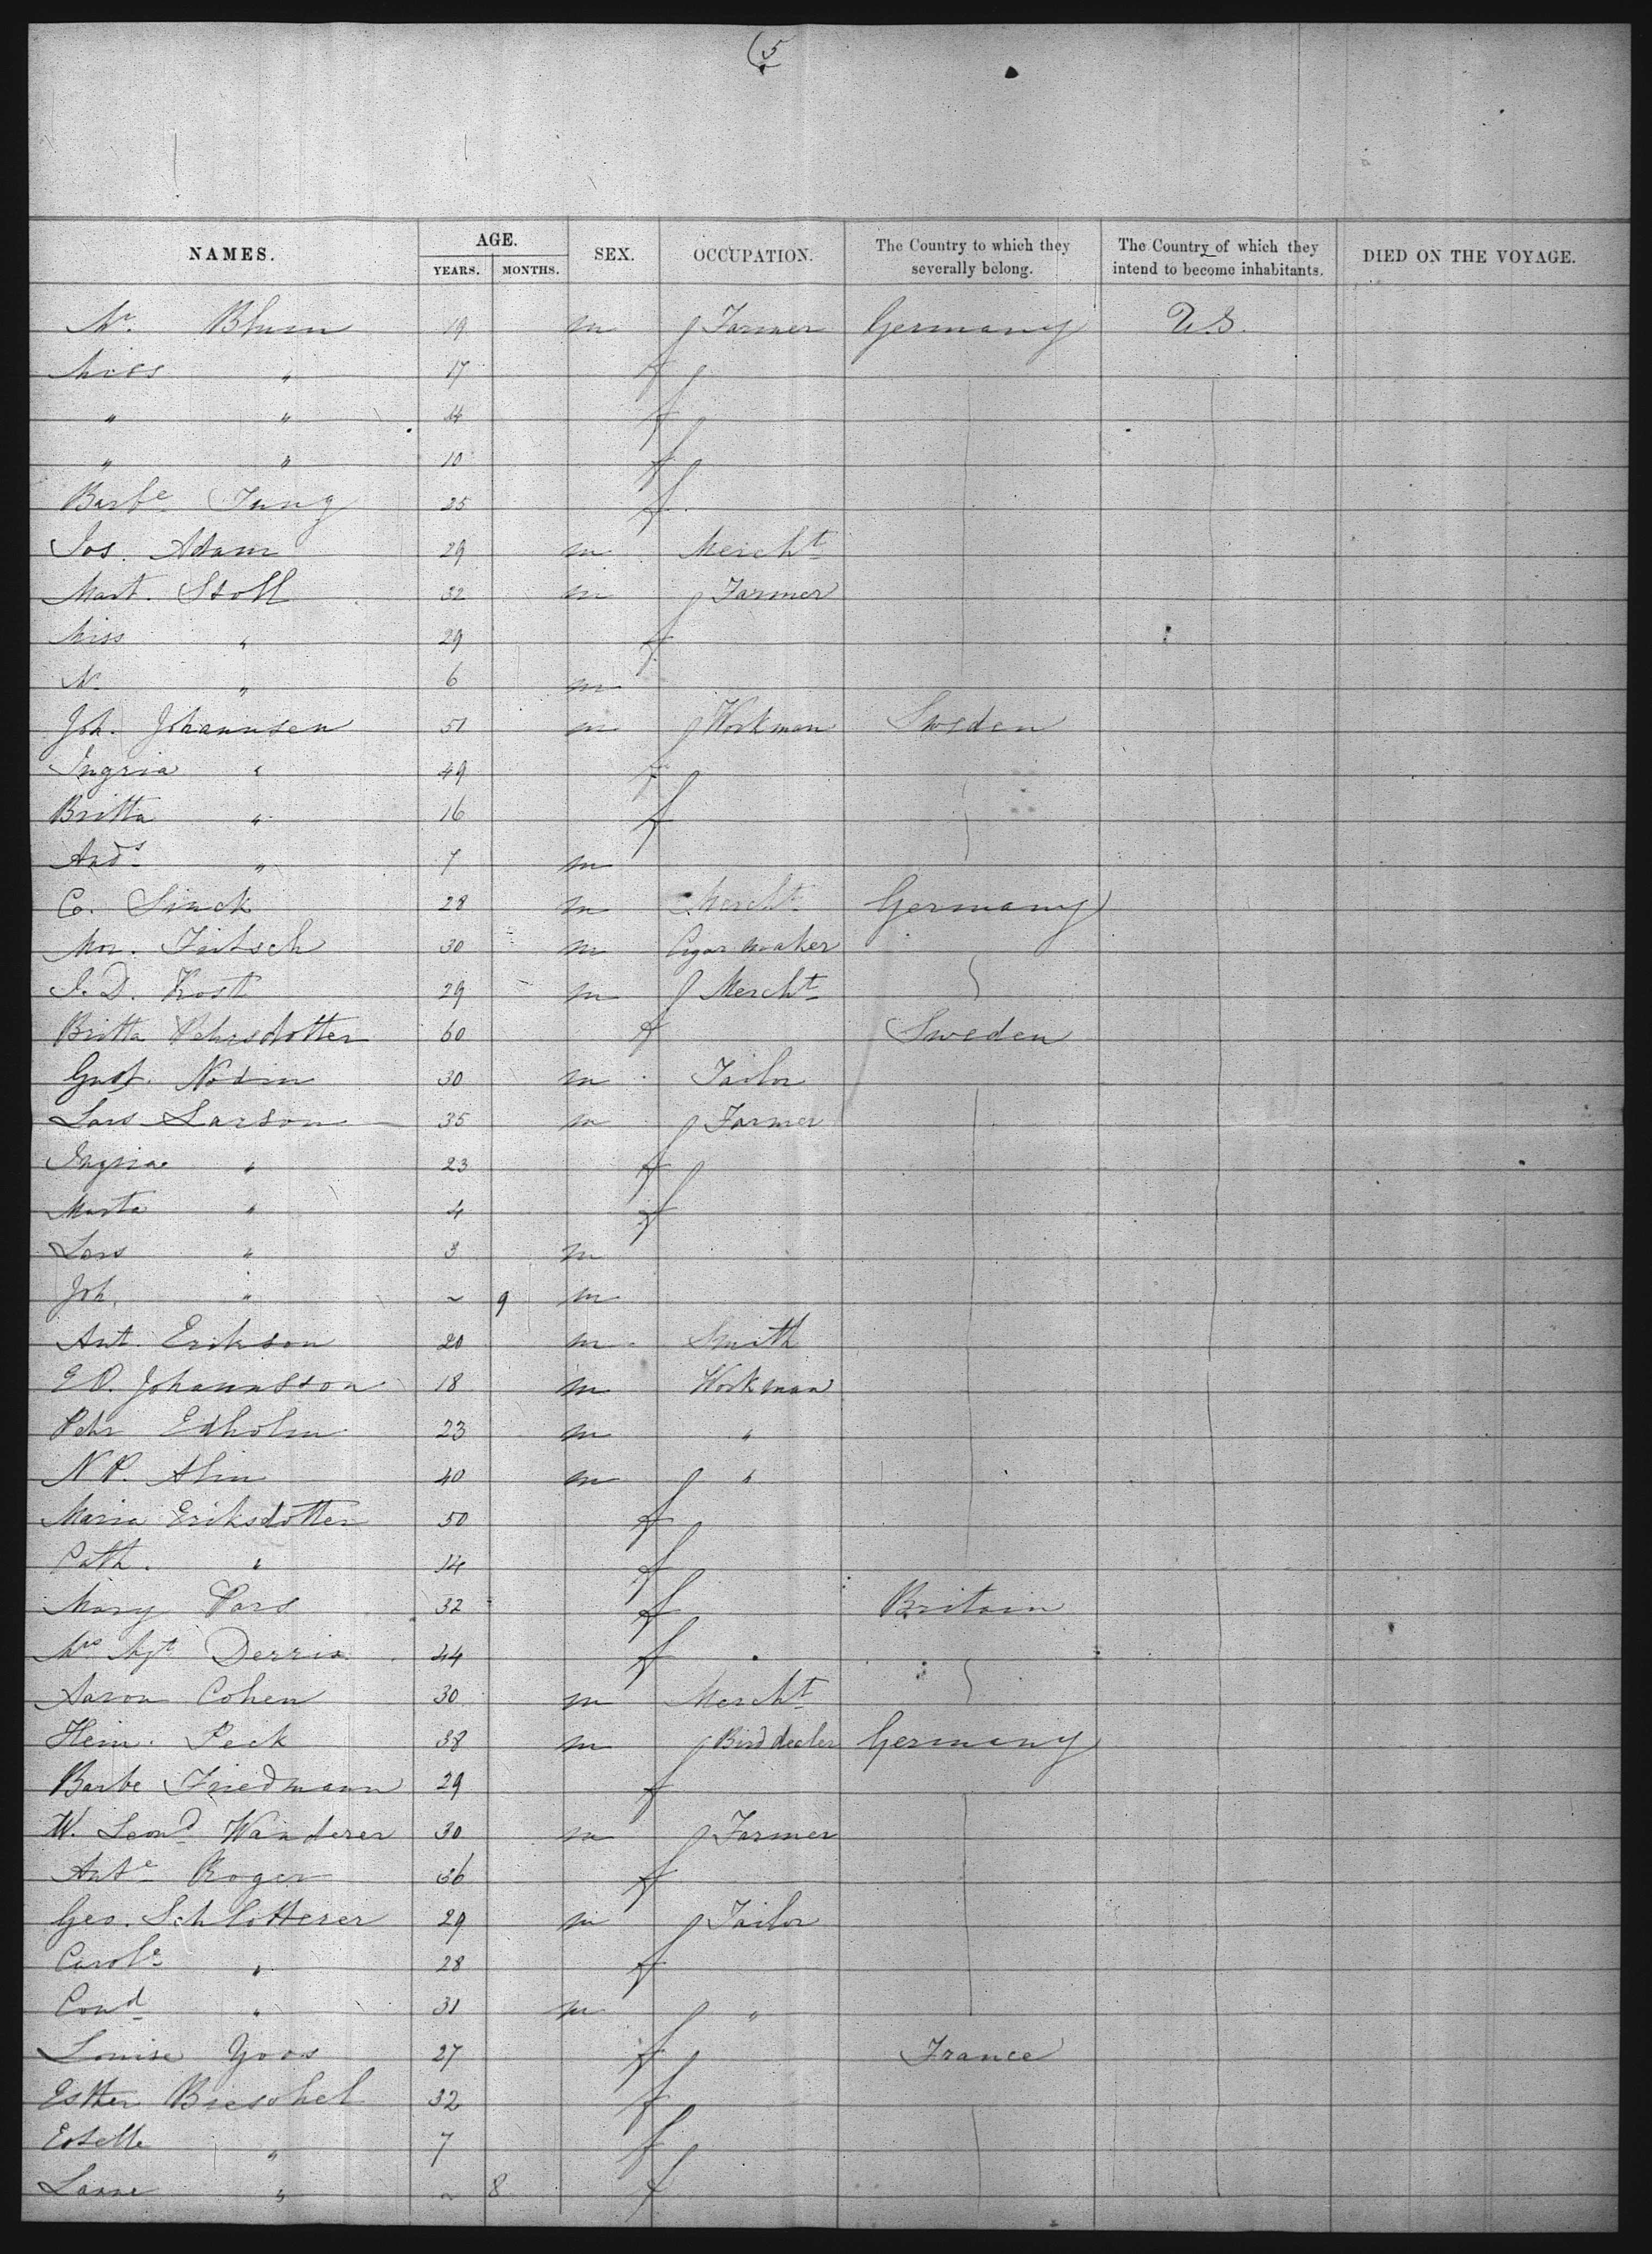 (5
NAMES. AGE. YEARS. MONTHS. SEX. OCCUPATION. The Country to which they severally belong. The Country of which they intend to become inhabitants. DIED ON THE VOYAGE.
Mr. Blum 19 m Farmer Germany U.S.
Miss " 17 f
" " 14 f
" " 10 f
Barbe Jung 25 f
Jos. Adam 29 m Mercht
Mart. Stoll 32 m Farmer
Miss " 29 f
M. " 6 m
Joh. Johannsen 51 m Workman Sweden
Ingria " 49 f
Britta " 16 f
Ands " 7 m
C. Sinck 28 m Mercht Germany
Mor. Fritsch 30 m Cigar maker
J. D. Kost 29 m Mercht
Britta Pehrsdotter 60 f Sweden
Gust. Nodin 30 m Tailor
Lars Larson 35 m Farmer
Ingria " 23 f
Marta " 4 f
Lars " 3 m
Joh. " ~ 9 m
Ant. Erikson 20 m Smith
E O. Johannsson 18 m Workman
Pehr Edholm 23 m "
N P. Alm 40 m "
Maria Eriksdotter 50 f
Cath. " 14 f
Mary Pars 32 f Britain
Mrs Mgt Derrix 44 f
Aaron Cohen 30 m Mercht
Hein. Peck 38 m Bird dealer Germany
Barbe Friedmann 29 f
W. Leond Wanderer 30 m Farmer
Ante Roger 36 f
Geo. Schlotterer 29 m Tailor
Carole " 28 f
Cond " 31 m "
Louise Yoos 27 f France
Esther Bieschel 32 f
Estelle " 7 f
" ~ 8 f